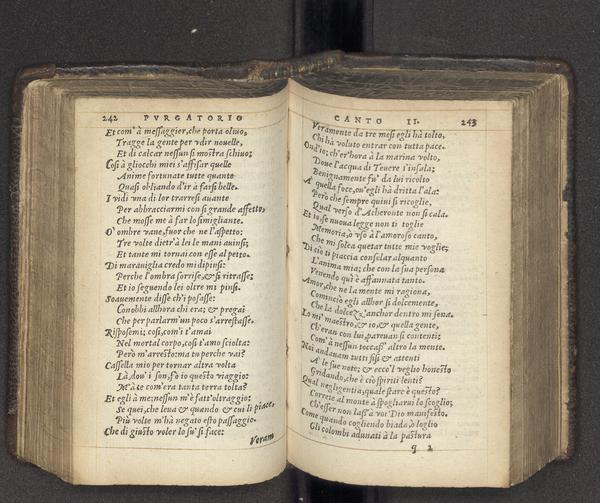 242 PVRGATORIO
Et com' à messaggier, che porta oliuo,
Tragge la gente per vdir nouelle,
Et di calcar nessun si mostra schiuo;
Cosi à gliocchi miei s'affisar quelle
Anime fortunate tutte quante
Quasi obliando d'ir à farsi belle.
I vidi vna di lor trarresi auante
Per abbracciarmi con si grande affetto,
Che mosse me à far lo simigliante.
O' ombre vane, fuor che ne l'aspetto:
Tre volte dietr' à lei le mani auinsi;
Et tante mi tornai con esse al petto.
Di marauiglia credo mi dipinsi:
Perche l'ombra sorrise, & si ritrasse;
Et io seguendo lei oltre mi pinsi.
Soauemente disse ch'i posasse:
Conobbi allhora chi era; & pregai
Che per parlarm' un poco s'arrestasse.
Risposemi; cosi, com'i t'amai
Nel mortal corpo, cosi t'amo sciolta:
Però m'arresto: ma tu perche vai?
Casella mio per tornar altra volta
Là, dou' i son, fo io questo viaggio:
M'à te com'era tanta terra tolta?
Et egli à me; nessun m'è fatt'oltraggio;
Se quei, che leua & quando & cui li piace,
Più volte m'hà negato esto passaggio.
Che di giusto voler lo su' si face:
Veram
CANTO II. 243
Veramente da tre mesi egli hà tolto,
Chi hà voluto entrar con tutta pace.
Ond'io; ch'er'hora à la marina volto,
Doue l'acqua di Teuere s'insala;
Benignamente fu' da lui ricolto
A' quella foce, ou'egli hà dritta l'ala:
Però che sempre quiui si ricoglie,
Qual verso d'Acheronte non si cala.
Et io; se nuoua legge non ti toglie
Memoria, ò vso à l'amoroso canto,
Che mi solea quetar tutte mie voglie;
Di ciò ti piaccia consolar alquanto
L'anima mia; che con la sua persona
Venendo qui è affannata tanto.
Amor, che ne la mente mi ragiona,
Cominciò egli allhor si dolcemente,
Che la dolcezz'anchor dentro mi sona.
Lo mi' maestro, & io, & quella gente,
Ch'eran con lui, pareuan si contenti;
Com'à nessun toccass' altro la mente.
Noi andauam tutti fisi & attenti
A' le sue note; & ecco'l veglio honesto
Gridando, che è ciò spiriti lenti?
Qual negligentia, quale stare è questo?
Correte al monte à spogliarui lo scoglio;
Ch'esser non lass'à voi Dio manifesto.
Come quando cogliendo biada, ò loglio
Gli colombi adunati à la pastura
q 2